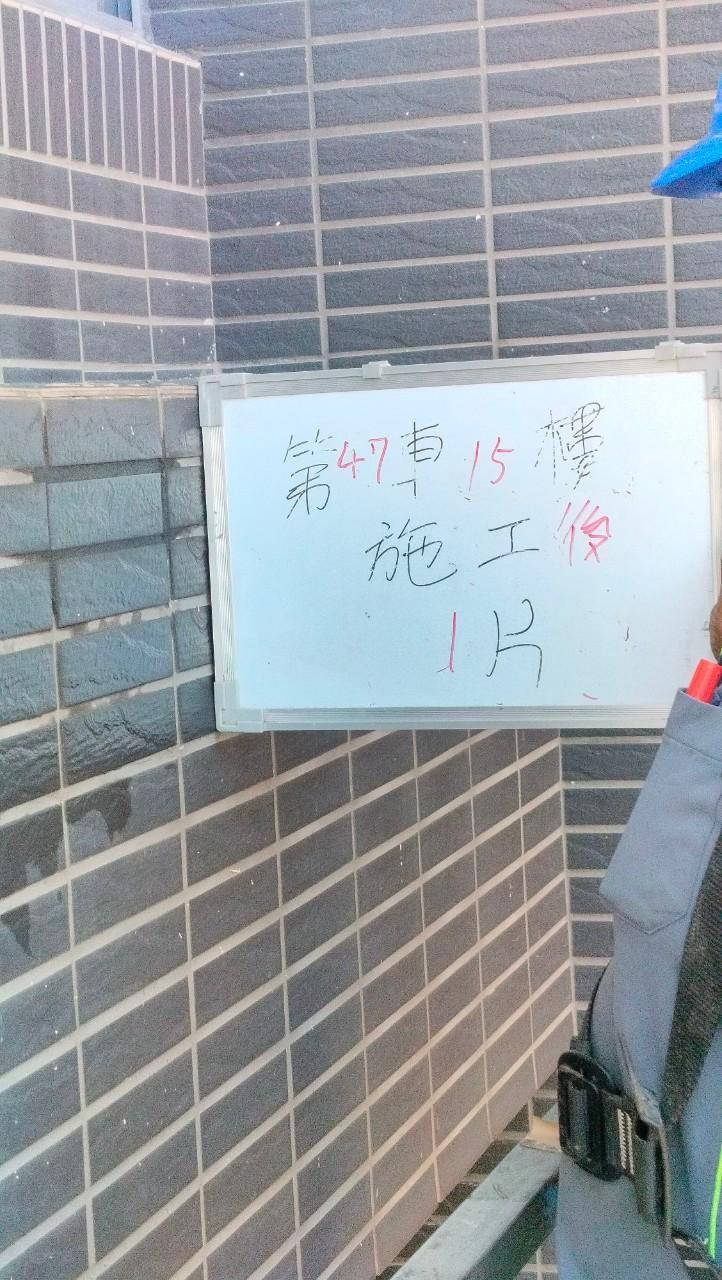 第47車15樓
施工後
1片